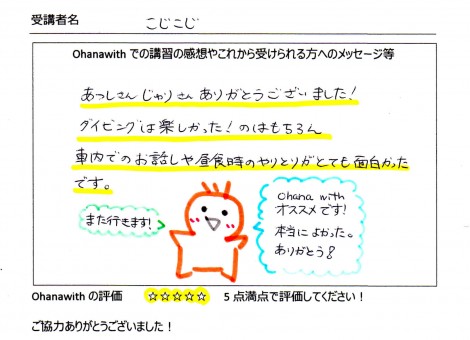 受講者名 こじこじ
Ohanawith での講習の感想やこれから受けられる方へのメッセージ等
あっしさん じゃりさん ありがとうございました!
ダイビングは楽しかった!のはもちろん
車内でのお話しや昼食時のやりとりがとても面白かった
です。
また行きます!
Ohana with
オススメです!
本当によかった。
ありがとう!
Ohanawith の評価 ☆☆☆☆☆ 5 点満点で評価してください!
ご協力ありがとうございました!